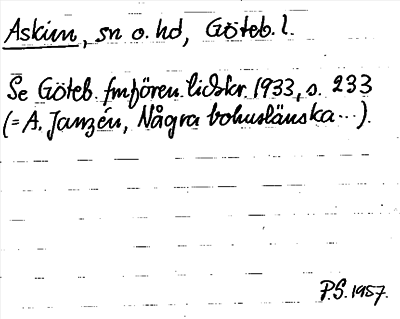 Askim, sn o. hd, Göteb. l.
Se Göteb. fmfören. tidskr. 1933, s. 233
(= A. Janzén, Några bohuslänska...).
P.S. 1957.